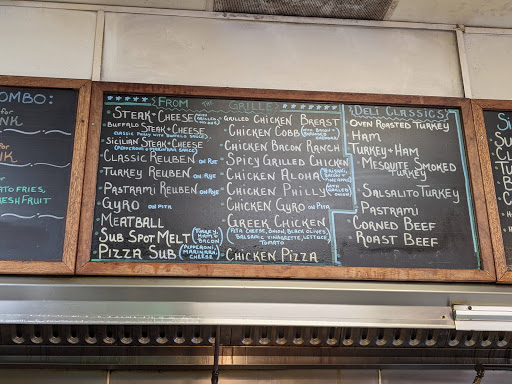 OMBO:
for
NK
for
NK
ATO FRIES,
FRESH FRUIT
FROM THE GRILLE
STEAK-CHEESE
BUFFALO STEAK+CHEESE
CLASSIC PHILLY WITH BUFFALO SAUCE
SICILIAN STEAK+CHEESE
(PEPPERONI + MARINARA SAUCE)
CLASSIC REUBEN ON RYE
TURKEY REUBEN ON RYE
PASTRAMI REUBEN ON RYE
GYRO ON PITA
MEATBALL
SUB SPOT MELT (TURKEY, HAM + BACON)
PIZZA SUB (PEPPERONI, MARINARA, CHEESE)
GRILLED CHICKEN BREAST
CHICKEN COBB
CHICKEN BACON RANCH
SPICY GRILLED CHICKEN
CHICKEN ALOHA
CHICKEN PHILLY
CHICKEN GYRO ON PITA
GREEK CHICKEN
(FETA CHEESE, ONION, BLACK OLIVES, BALSAMIC VINAIGRETTE, LETTUCE, TOMATO)
CHICKEN PIZZA
DELI CLASSICS
OVEN ROASTED TURKEY
HAM
TURKEY+HAM
MESQUITE SMOKED TURKEY
SALSALITO TURKEY
PASTRAMI
CORNED BEEF
ROAST BEEF